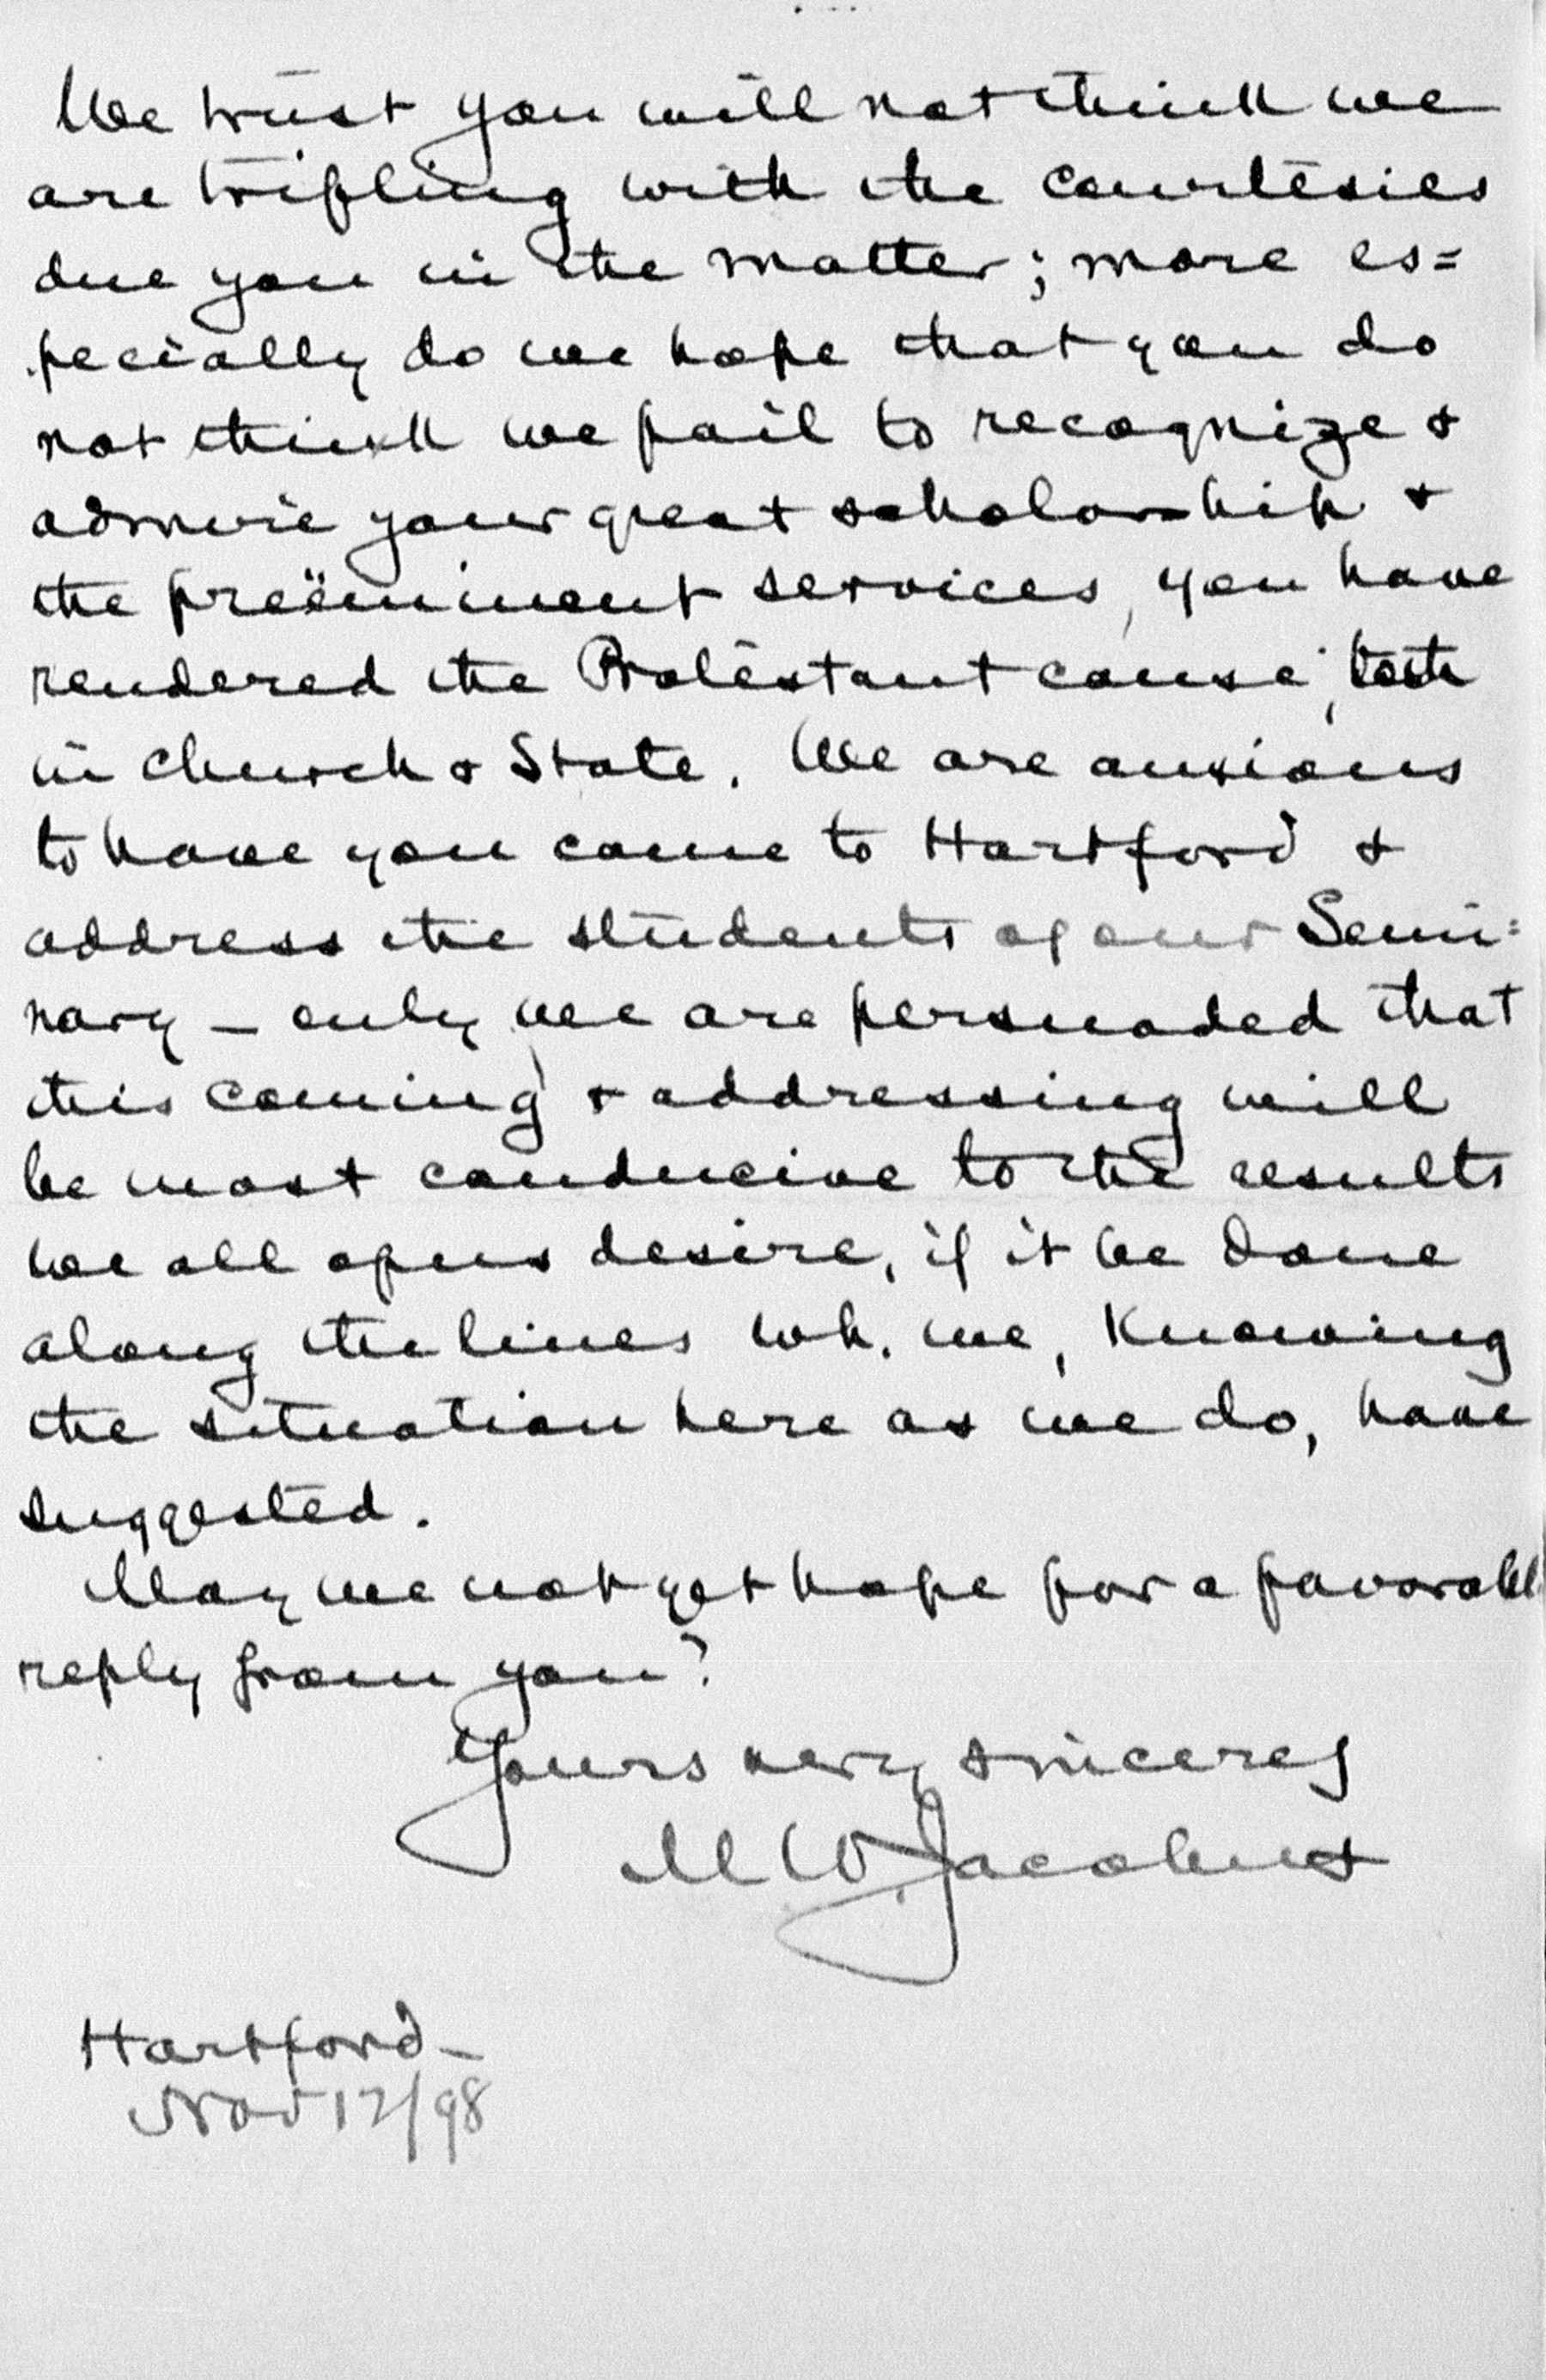 We trust you will not think we
are trifling with the courtesies
due you in the matter; more es=
pecially do we hope that you do
not think we fail to recognize &
admire your great scholarship &
the preëminent services, you have
rendered the Protestant cause, both
in Church & State. We are anxious
to have you come to Hartford &
address the students of our Semi=
nary – only we are persuaded that
this coming & addressing will
be most conducive to the results
we all of us desire, if it be done
along the lines wh. we, knowing
the situation here as we do, have
suggested.
May we not yet hope for a favorable
reply from you?
Yours very sincerey
M W Jacobus
Hartford –
Nov 12/98